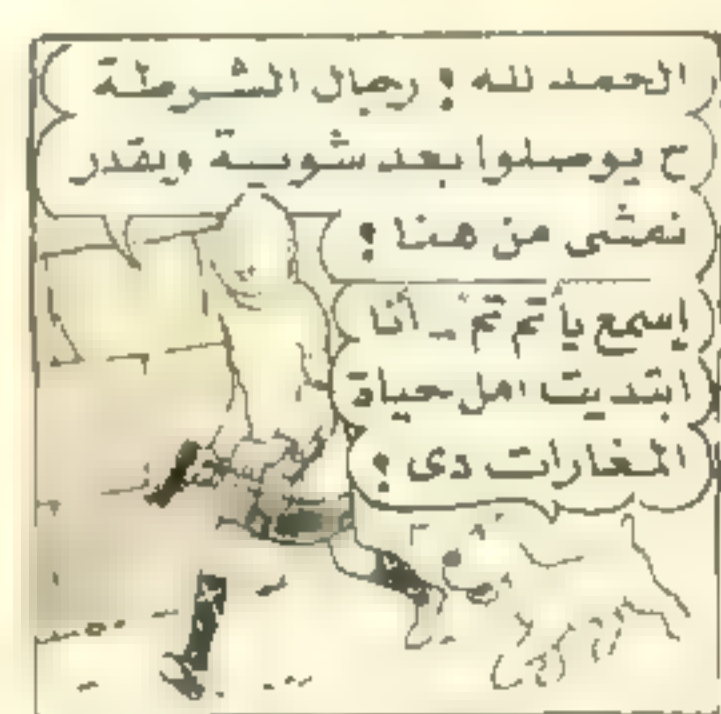 الحمد لله ! رجال الشرطة
ح يوصلوا بعد شويـة ونقدر
نمشى من هنا !
إسمع يا تم تم ـ أنا
ابتديت امل حياة
المغارات دى !